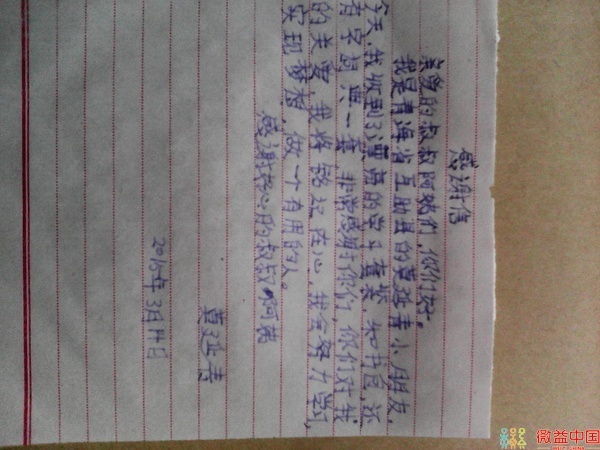 感谢信
亲爱的叔叔阿姨们,你们好。
我是青海省互助县的莫延寿小朋友,
今天,我收到了漂亮的学习套装,和书包,还
有字词典一套,非常感谢你们,你们对我
的关爱,我将铭记在心,我会努力学习,
实现梦想,做一个有用的人。
感谢热心的叔叔阿姨
莫延寿
2015年3月14日
微益中国